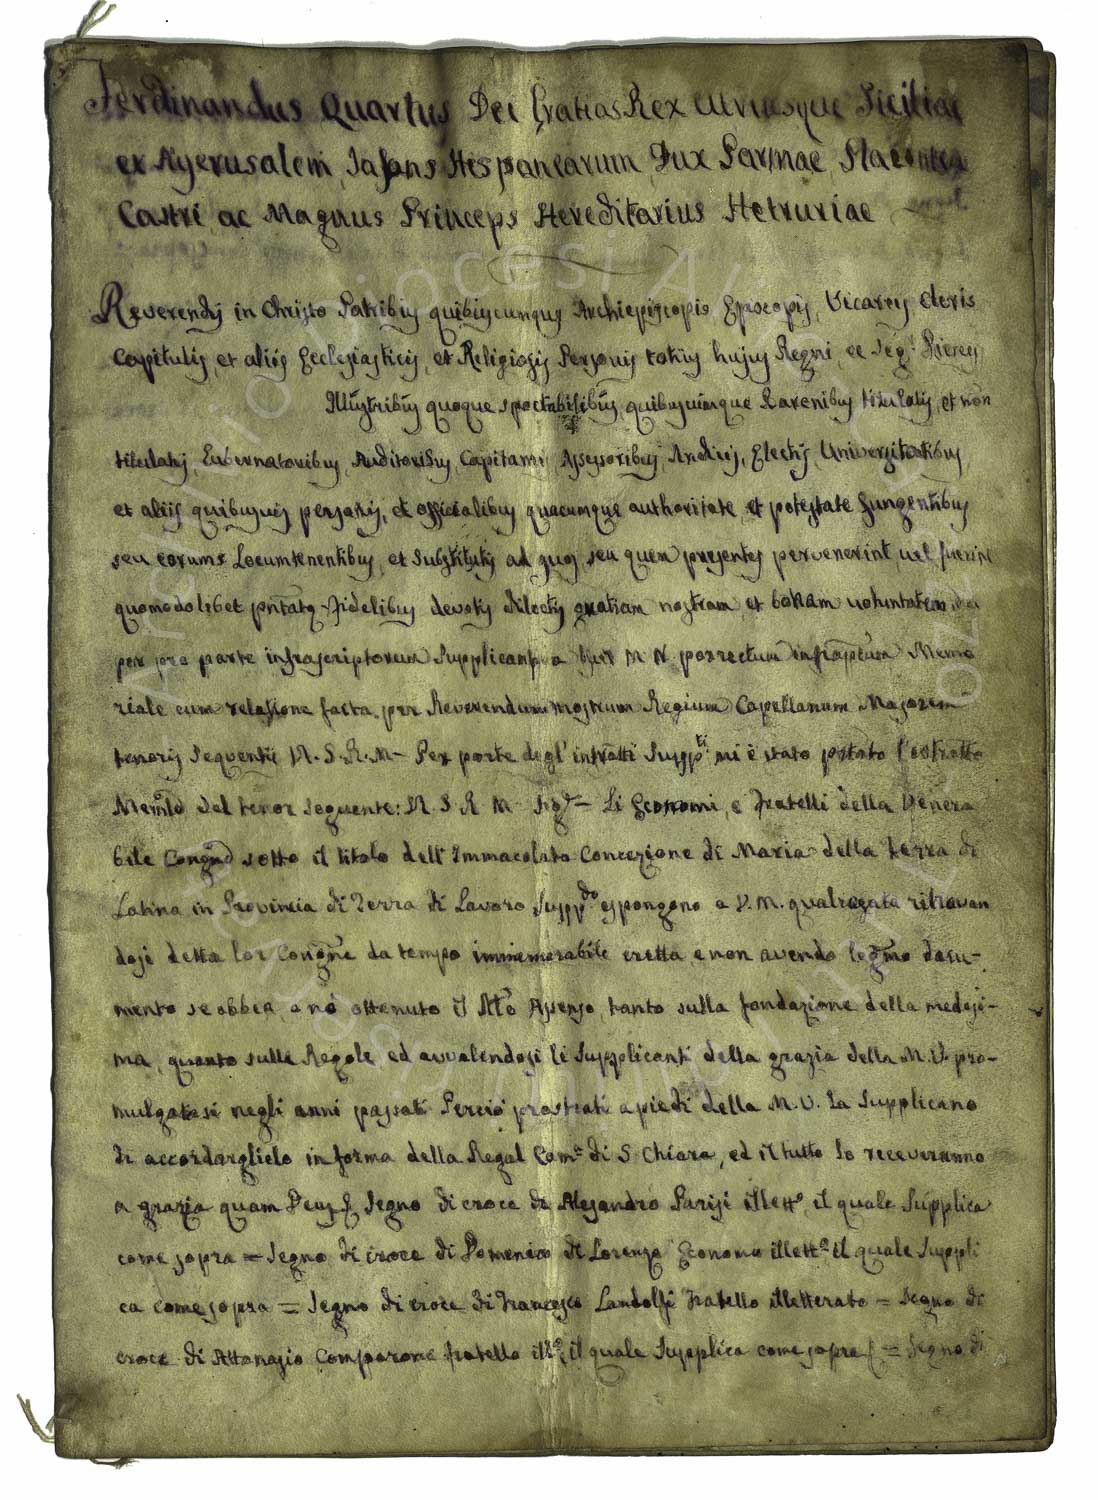 Ferdinandus Quartus Dei Gratias Rex Utriusque Siciliae
et Hyerusalem, Infans Hispaniarum, Dux Parmae, Placentiae
Castri ac Magnus Princeps Hereditarius Hetruriae
Reverendis in Christo Patribus quibuscunque Archiepiscopis Episcopis, Vicareis Cleris
Capitulis, et aliis Ecclesiasticis, et Religiosis Personis totius hujus Regni,
Illustribus quoque spectabilibus, quibuscumque Baronibus titulatis, et non
titulatis, Gubernatoribus, Auditoribus, Capitaneis Assessoribus, Sindicis, Electis, Universitatibus
et aliis quibusvis personis, et officialibus quacumque authoritate, et potestate fungentibus
seu eorums Locumtenentibus, et Substitutis ad quos, seu quem presentes pervenerint, vel fuerint
quomodolibet pntatq fidelibus devotis dilectis gratiam nostram et bonam voluntatem
per pro parte infrascriptorum Supplicant a M N porrectum Memo
riale cum relatione facta per Reverendum nostrum Regium Capellanum Majorem
tenoris sequentis N. S. R. M - Per parte degl' infratti Suppti mi è stato pntato l'estratto
Memle del tenor seguente: N S R M Sigre - Li Economi, e Fratelli della Venera
bile Congne sotto il titolo dell' Immacolata Concezione di Maria della terra di
Latina in Provincia di Terra di Lavoro Suppdo espongono a V. M. qualmente ritrovan
dosi detta lor Congne da tempo immemorabile eretta, e non avendo docu-
mento se abbia, o nò ottenuto il Assenso, tanto sulla fondazione della medesi-
ma, quanto sulle Regole, ed avvalendosi li Supplicanti della grazia della M. V. pro-
mulgatasi negli anni passati Perciò prostrati a piedi della M. V. La Supplicano
di accordarglielo in forma della Regal Cama di S Chiara, ed il tutto lo receveranno
a grazia quam Deus Segno di croce di Alesandro Parisi illetto, il quale Supplica
come sopra = Segno di croce di Domenico di Lorenzo Economo illetto il quale Suppli
ca come sopra = Segno di croce di Francesco Landolfi Fratello illetterato = Segno di
croce di Attanasio Comparone fratello illo, il quale Supplica come sopra = Segno di
Archivio Diocesi